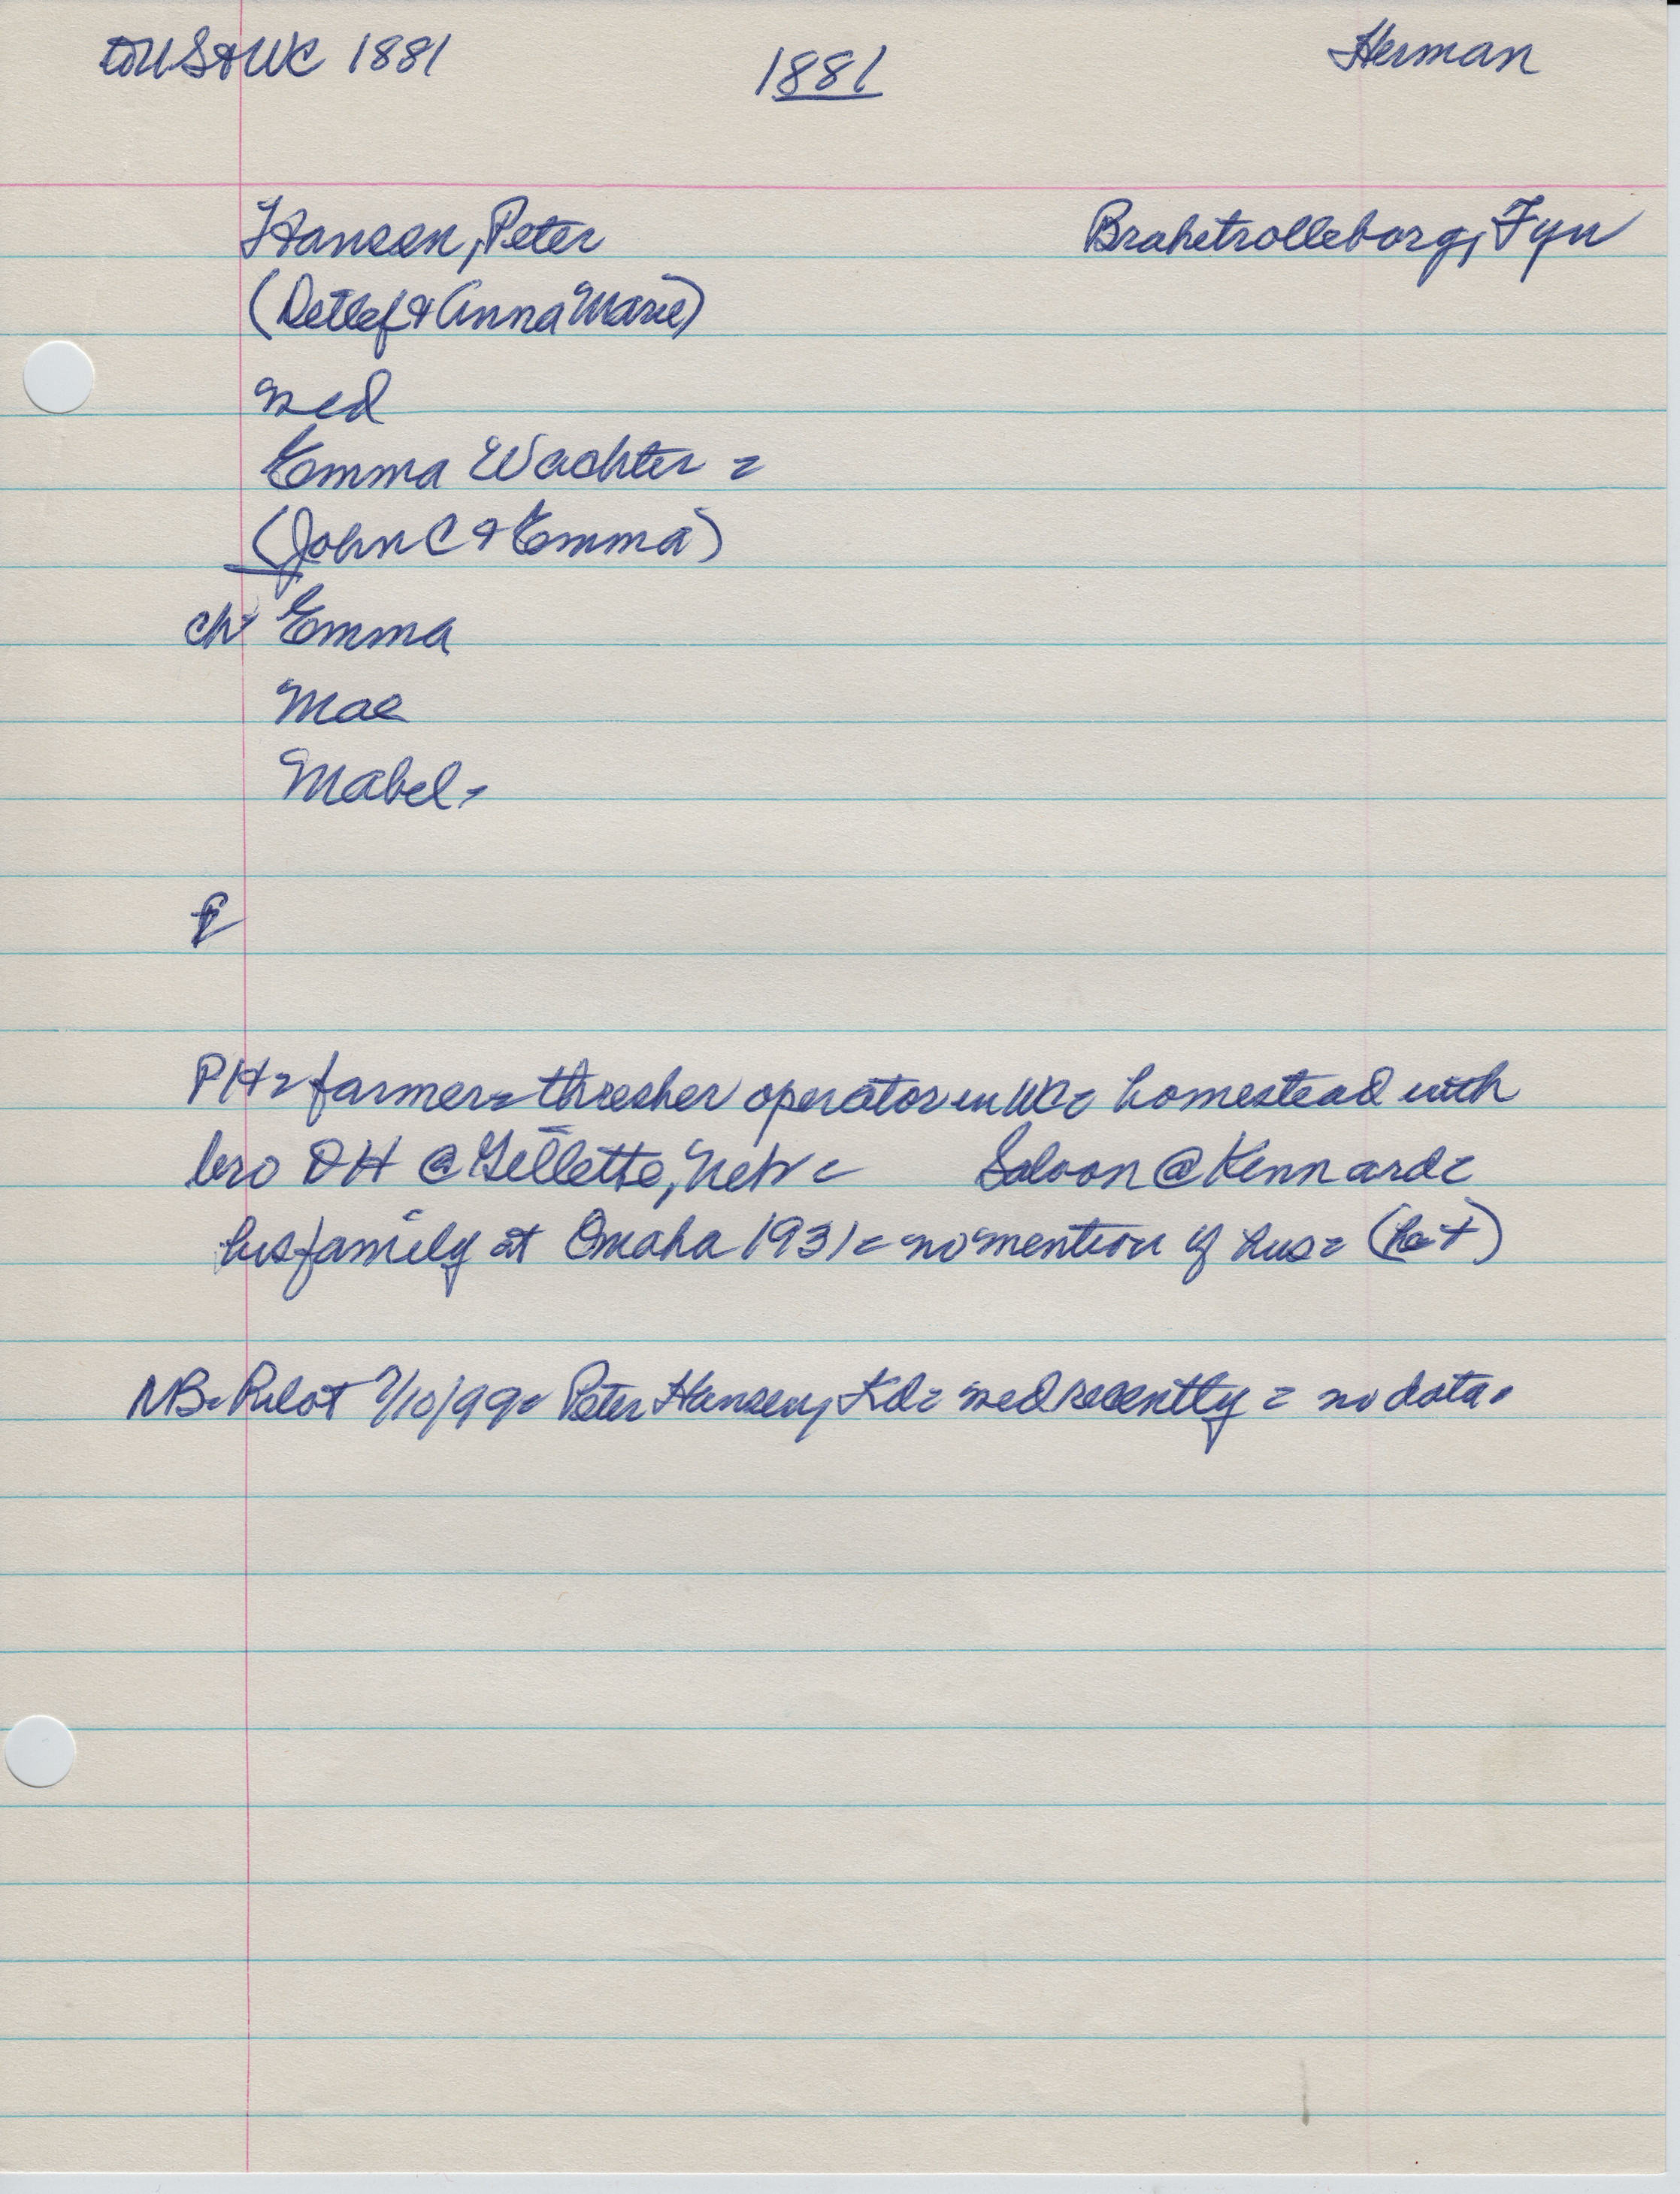 to US & WC 1881
1881
Herman
Hansen, Peter
Brahetrolleborg, Fyn
(Detlef & Anna Marie)
med
Emma Wachter =
(John C & Emma)
ch Emma
Mae
Mabel =
PH = farmer = thresher operator in WC = homestead with
bro DH @ Gillette, Neb = Saloon @ Kennard =
his family at Omaha 1931 = no mention of hus =
NB = Pilot /10/99 = Peter Hansen, Kd = med recently = no data.